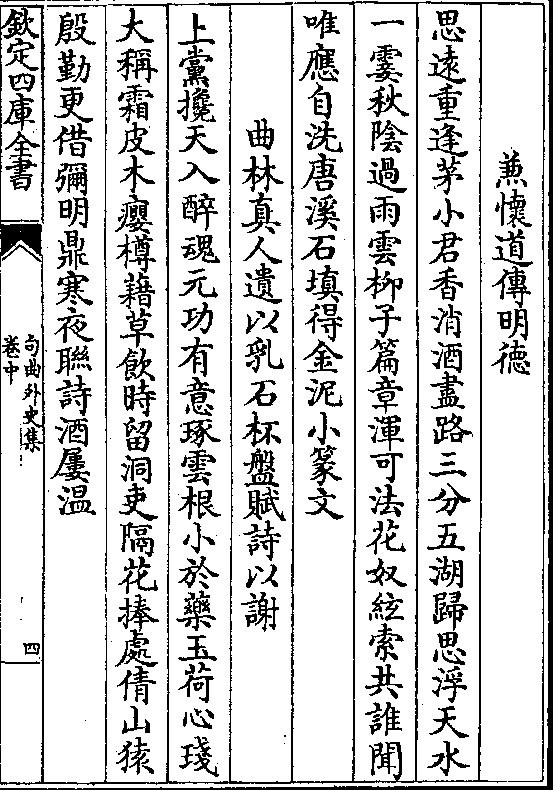 兼懷道傳明德
思遠重逢茅小君香消酒盡路三分五湖歸思浮天水
一霎秋陰過雨雲柳子篇章渾可法花奴絃索共誰聞
唯應自洗唐溪石填得金泥小篆文
曲林真人遺以乳石杯盤賦詩以謝
上黨攙天入醉魂元功有意琢雲根小於藥玉荷心琖
大稱霜皮木癭樽藉草飲時留洞吏隔花捧處倩山猿
殷勤更借彌明鼎寒夜聯詩酒屢温
欽定四庫全書
句曲外史集
卷中
四